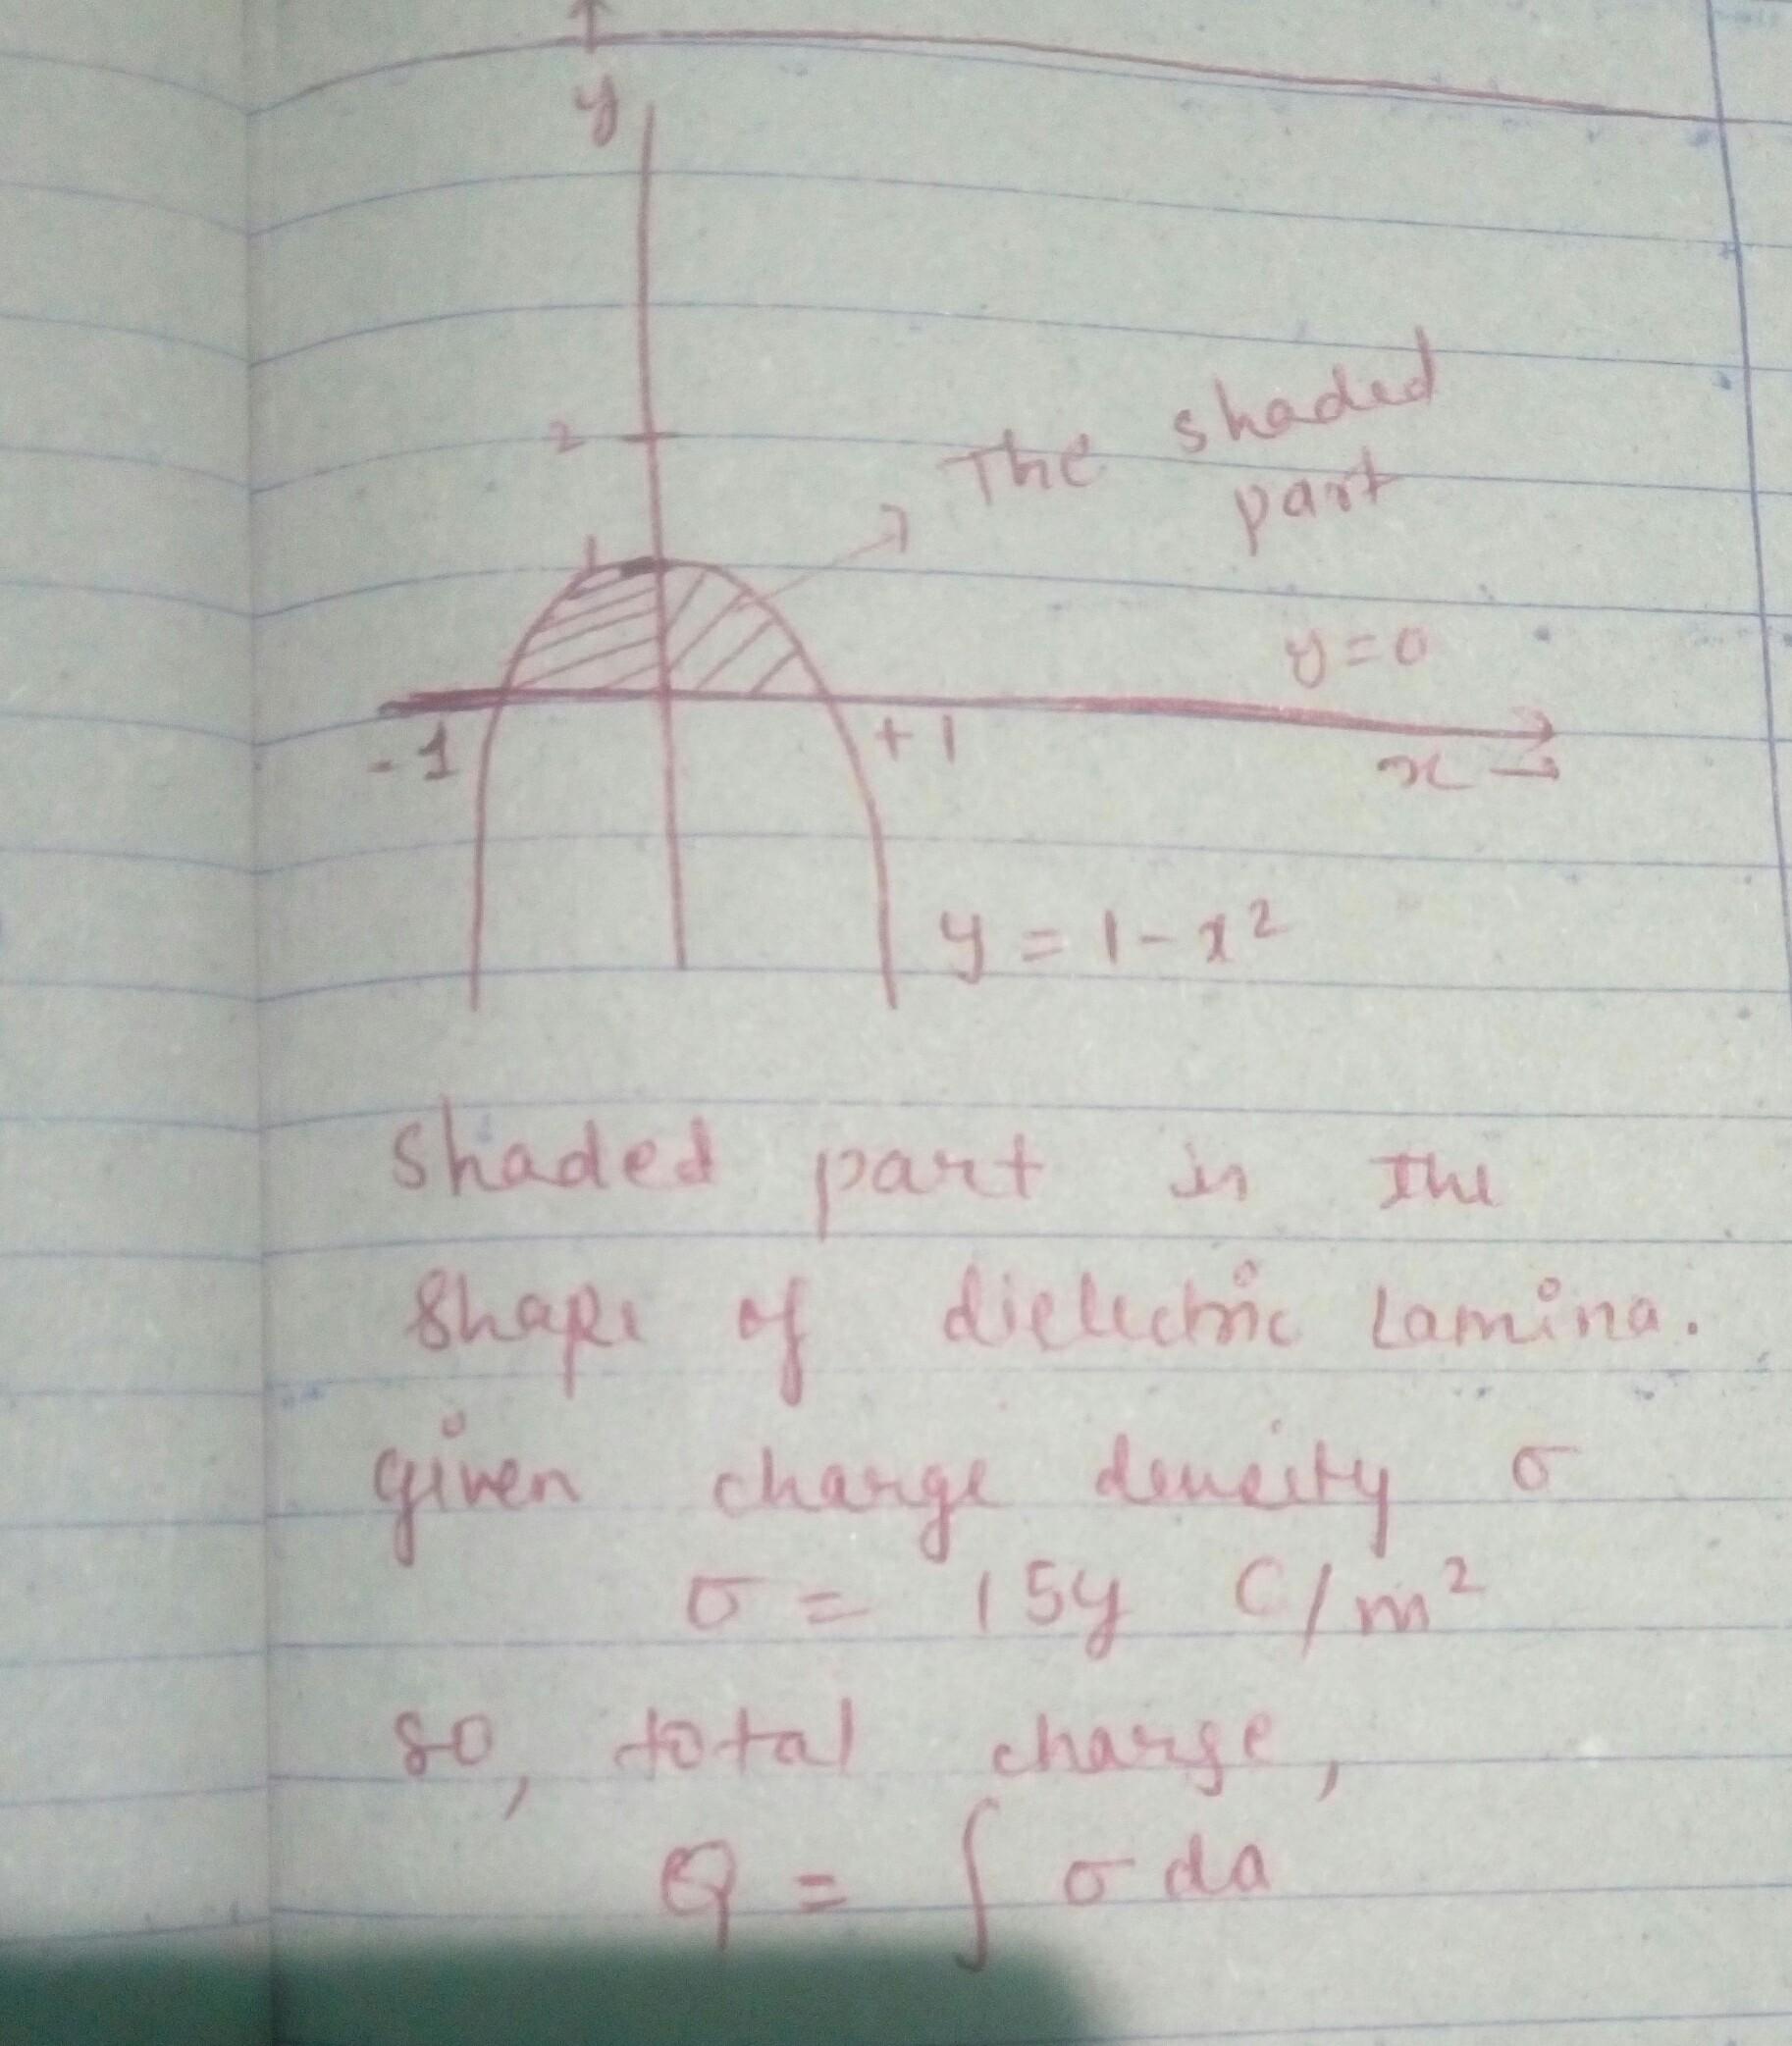 y
2
The shaded
part
1
y=0
-1
+1
x →
y = 1-x²
shaded part is the
shape of dielectric Lamina.
given charge density σ
σ = 15y C/m²
so, total charge,
Q = ∫ σ da